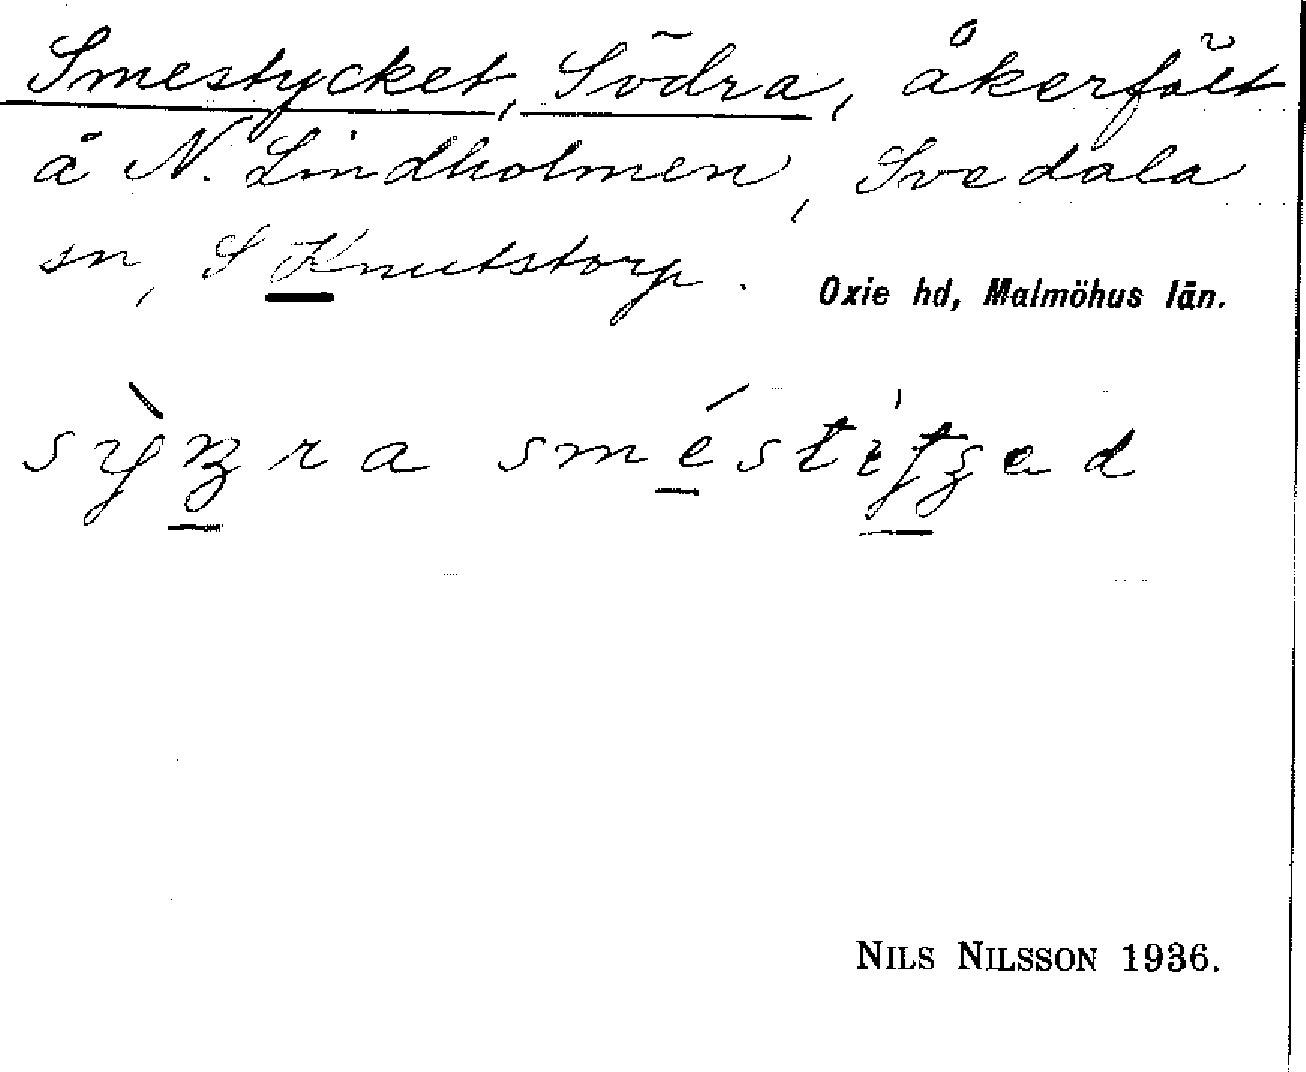 Smestycket, Södra, åkerfält
å N. Lindholmen, Svedala
sn, S Knutstorp.
Oxie hd, Malmöhus län.
NILS NILSSON 1936.